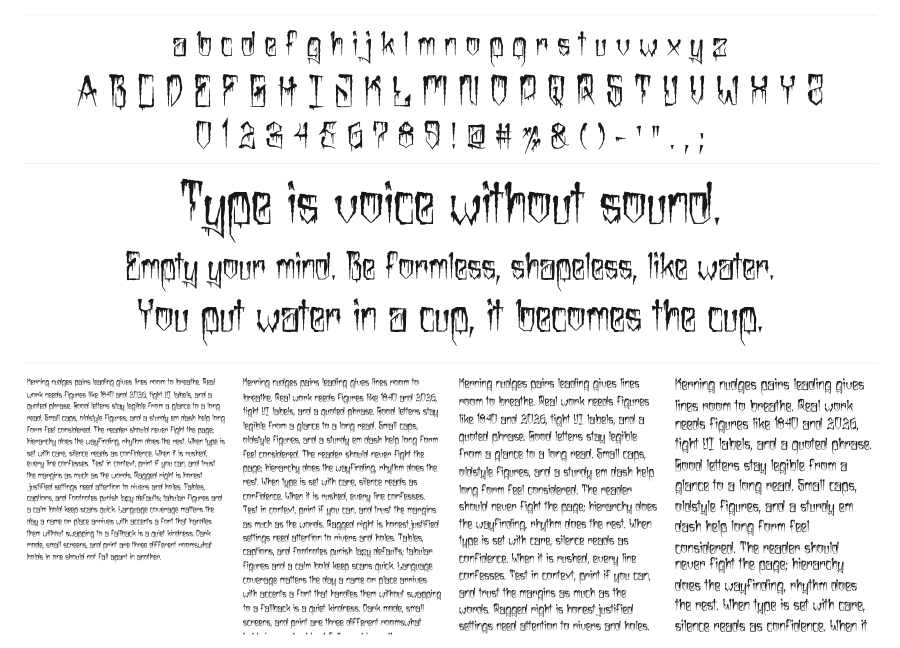 a b c d e f g h i j k l m n o p q r s t u v w x y z
A B C D E F G H I J K L M N O P Q R S T U V W X Y Z
0 1 2 3 4 5 6 7 8 9 ! @ # % & ( ) - ' " . , ;
Type is voice without sound.
Empty your mind. Be formless, shapeless, like water.
You put water in a cup, it becomes the cup.
Kerning nudges pairs leading gives lines room to breathe. Real
work needs figures like 1840 and 2026, tight I/I labels, and a
quoted phrase. Good letters stay legible from a glance to a long
read. Small caps, oldstyle figures, and a sturdy em dash help long
form feel considered. The reader should never fight the page;
hierarchy does the wayfinding, rhythm does the rest. When type is
set with care, silence reads as confidence. When it is rushed,
every line confesses. Test in context, print if you can, and trust
the margins as much as the words. Ragged right is honest
justified settings need attention to rivers and holes. Tables,
captions, and footnotes punish lazy defaults; tabular figures and
a calm bold keep scans quick. Language coverage matters the
day a name or place arrives with accents a font that handles
them without swapping to a fallback is a quiet kindness. Dark
mode, small screens, and print are three different rooms what
holds in one should not fall apart in another.
Kerning nudges pairs leading gives lines room to
breathe. Real work needs figures like 1840 and 2026,
tight I/I labels, and a quoted phrase. Good letters stay
legible from a glance to a long read. Small caps,
oldstyle figures, and a sturdy em dash help long form
feel considered. The reader should never fight the
page; hierarchy does the wayfinding, rhythm does the
rest. When type is set with care, silence reads as
confidence. When it is rushed, every line confesses.
Test in context, print if you can, and trust the margins
as much as the words. Ragged right is honest justified
settings need attention to rivers and holes. Tables,
captions, and footnotes punish lazy defaults; tabular
figures and a calm bold keep scans quick. Language
coverage matters the day a name or place arrives
with accents a font that handles them without swapping
to a fallback is a quiet kindness. Dark mode, small
screens, and print are three different rooms what
Kerning nudges pairs leading gives lines
room to breathe. Real work needs figures
like 1840 and 2026, tight I/I labels, and a
quoted phrase. Good letters stay legible
from a glance to a long read. Small caps,
oldstyle figures, and a sturdy em dash help
long form feel considered. The reader
should never fight the page; hierarchy does
the wayfinding, rhythm does the rest. When
type is set with care, silence reads as
confidence. When it is rushed, every line
confesses. Test in context, print if you can,
and trust the margins as much as the
words. Ragged right is honest justified
settings need attention to rivers and holes.
Kerning nudges pairs leading gives
lines room to breathe. Real work
needs figures like 1840 and 2026,
tight I/I labels, and a quoted phrase.
Good letters stay legible from a
glance to a long read. Small caps,
oldstyle figures, and a sturdy em
dash help long form feel
considered. The reader should
never fight the page; hierarchy
does the wayfinding, rhythm does
the rest. When type is set with care,
silence reads as confidence. When it